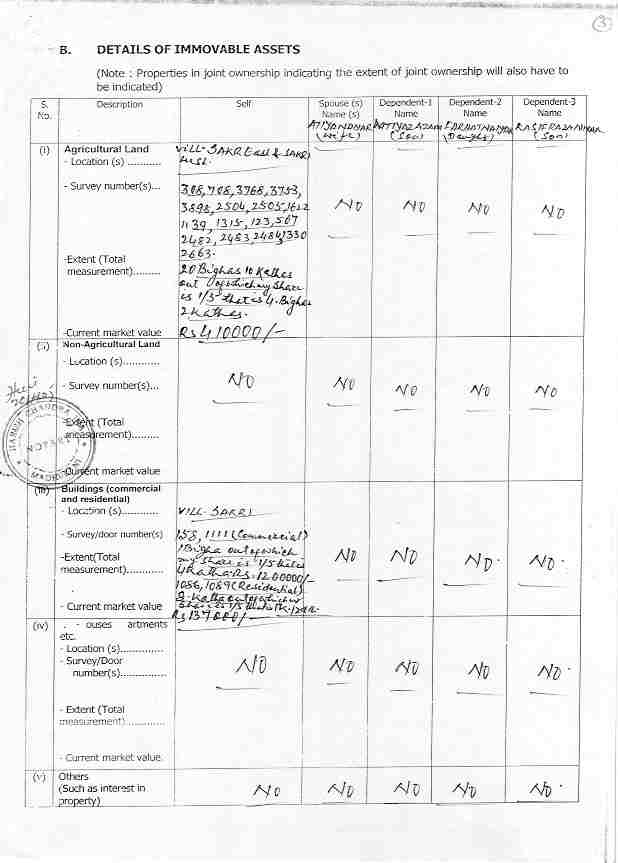 3
B. DETAILS OF IMMOVABLE ASSETS
(Note : Properties in joint ownership indicating the extent of joint ownership will also have to
be indicated)
S. No. Description Self Spouse (s) Name (s) Dependent-1 Name Dependent-2 Name Dependent-3 Name
(wife) (Son) (Daught) (Son)
(i) Agricultural Land
- Location (s) ........... VILL- SAKRI East & SAKRI
West.
- Survey number(s)... 308, 708, 3768, 3753,
3898, 2504, 2505, 1612
1139, 1315, 123, 567
2482, 2483, 2484, 1330
2663.
NO NO NO NO
-Extent (Total
measurement)......... 20 Bighas 10 Kathas
out of which my share
is 1/5 that is 4. Bighas
2 Kathas.
-Current market value Rs 410000/-
(ii) Non-Agricultural Land
- Location (s)............
- Survey number(s)... NO NO NO NO NO
-Extent (Total
measurement).........
-Current market value
HARISH CHANDRA
NOTARY
(iii) Buildings (commercial
and residential)
- Location (s)............ VILL- SAKRI
- Survey/door number(s) 158, 1111 (Commercial)
-Extent(Total 1 Bigha out of which
measurement)............ my share is 1/5 that is
4 Katha. Rs. 1200000/-
1086, 1089 (Residential)
- Current market value
Rs 137000/-
NO NO NO. NO.
(iv) . - ouses artments
etc.
- Location (s)..............
- Survey/Door
number(s)............... NO NO NO NO NO.
- Extent (Total
measurement)............
- Current market value.
(v) Others
(Such as interest in
property) NO NO NO NO NO.